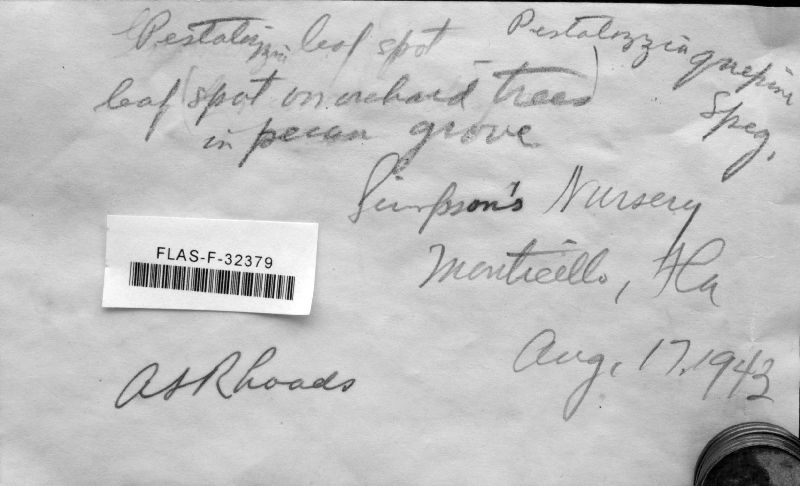 Pestalozzia leaf spot
Pestalozzia guepini
Speg.
leaf (spot on orchard trees)
in pecan grove
Simpson's Nursery
Monticello, Fla
FLAS-F-32379
Aug. 17, 1943
AS Rhoads